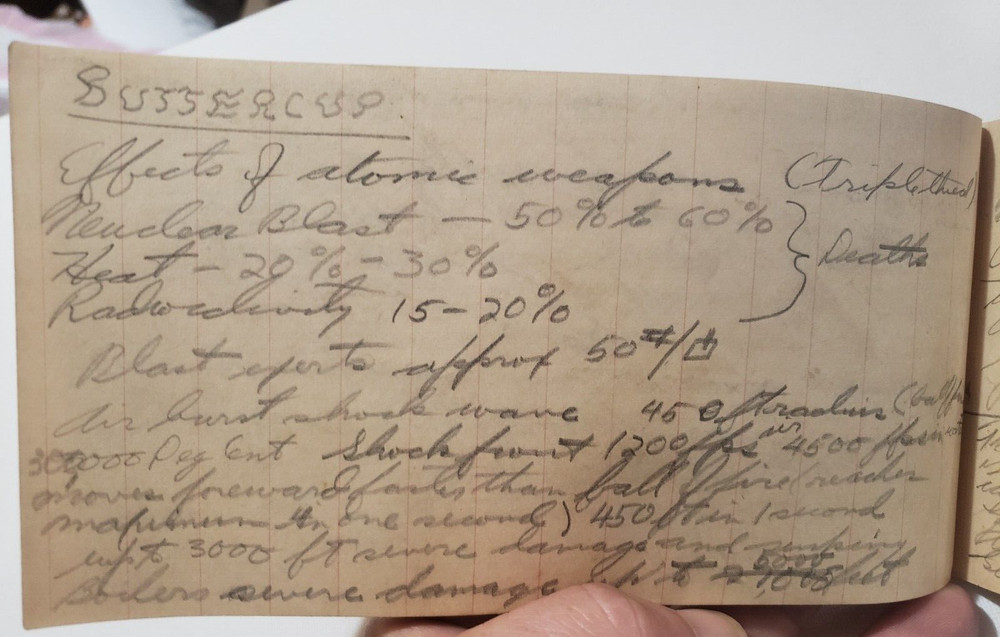 BUTTERCUP
Effects of atomic weapons (Triple threat)
Nuclear Blast — 50% to 60%
Heat - 20% - 30% } Deaths
Radioactivity 15-20%
Blast exerts approx 50 #/
Air burst shock wave 450 ft radius (ball
000 Deg Cent Shock front 1200 fps air 4500 fps in
moves foreward faster than ball of fire reaches
maximum in one second) 450 ft in 1 second
up to 3000 ft severe damage and
Boilers severe damage up to 5000 feet